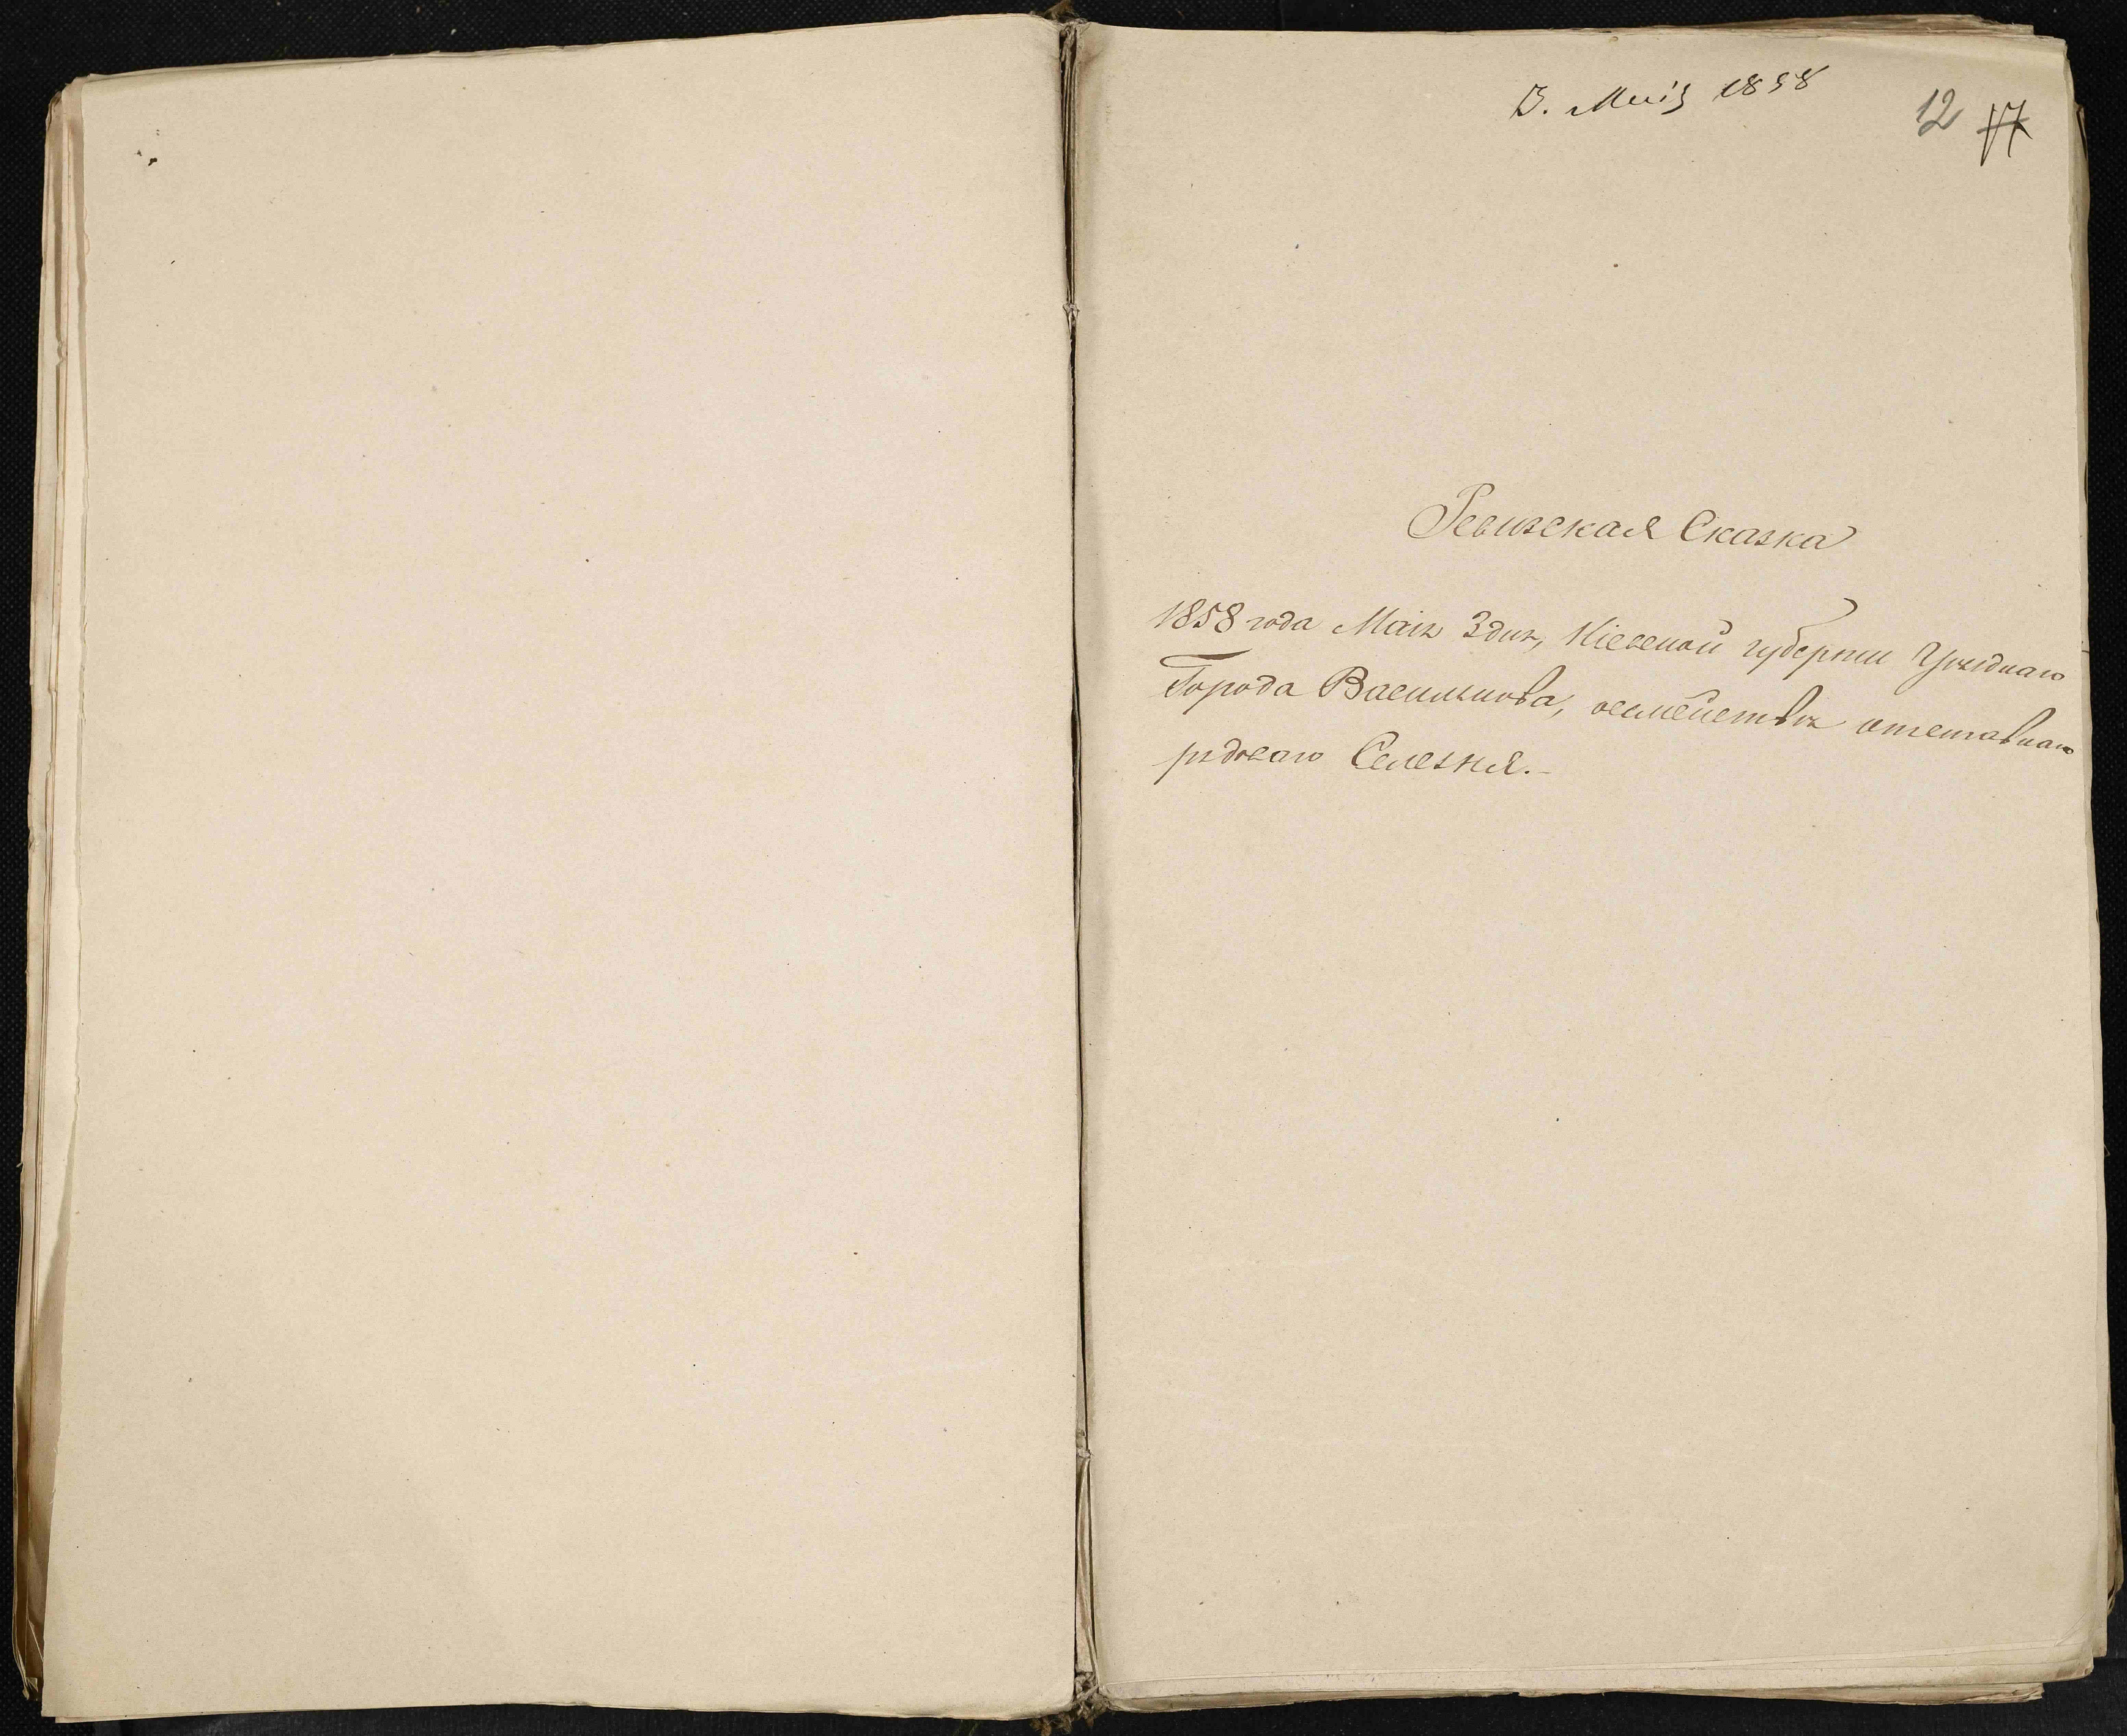 3. Маія 1858
12 17
Ревизская Сказка
1858 года Маія 3 дня, Кіевской губерніи Уѣзднаго
Города Василькова, осемействѣ отставнаго
рядоваго Селезня.-